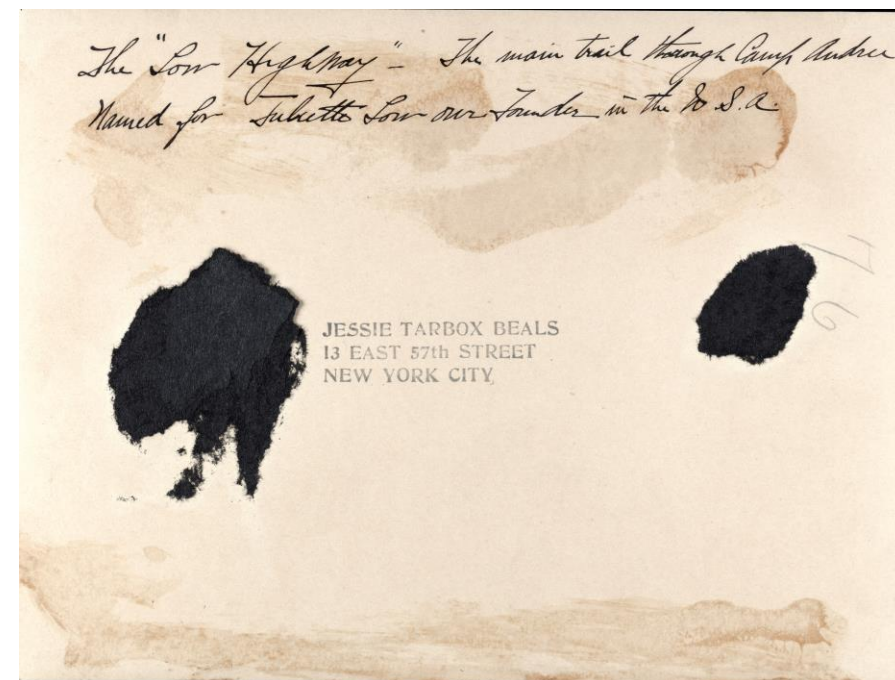 The "Low Highway" – The main trail through Camp Andree
Named for Juliette Low our Founder in the U.S.A.
JESSIE TARBOX BEALS
13 EAST 57th STREET
NEW YORK CITY
76